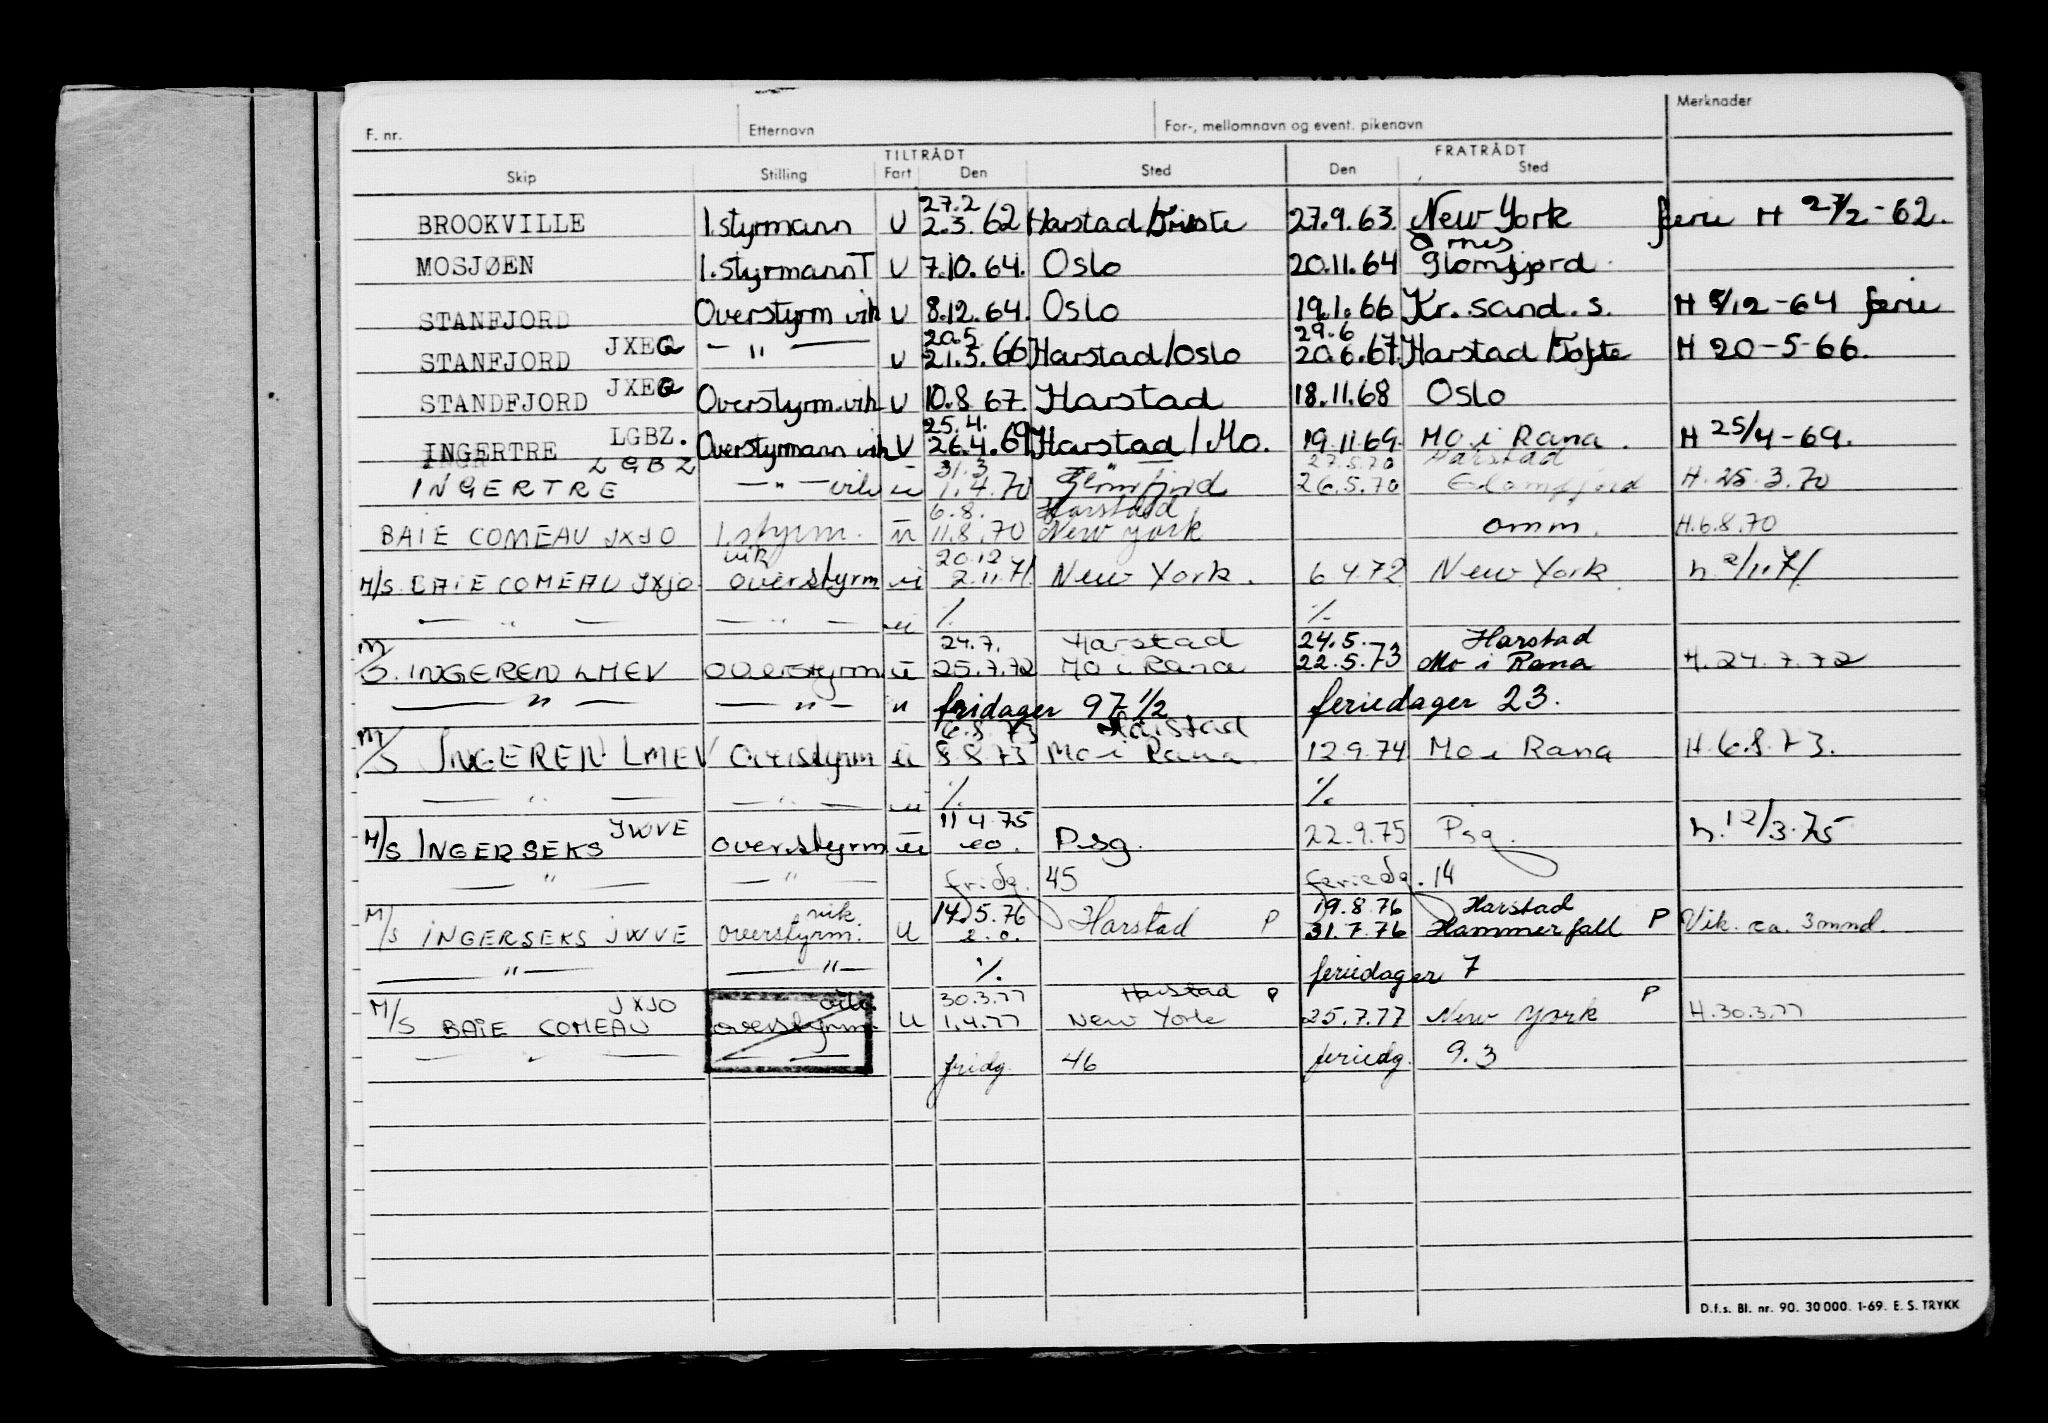 F. nr. Etternavn For-, mellomnavn og event. pikenavn Merknader
TILTRÅDT FRATRÅDT
Skip Stilling Fart Den Sted Den Sted
27.2
BROOKVILLE 1.styrmann U 2.3.62 Harstad/ 27.9.63 New York ferie H 27/2-62.
Ørnes
MOSJØEN 1.styrmann T U 7.10.64. Oslo 20.11.64 Glomfjord
STANFJORD Overstyrm vik U 8.12.64. Oslo 19.1.66 Kr.sand.s. H 8/12-64 ferie
20.5 29.6
STANFJORD JXEQ — " — U 21.5.66 Harstad/Oslo 20.6.67. Harstad/Tofte H 20-5-66.
STANDFJORD JXEQ Overstyrm.vik U 10.8.67. Harstad 18.11.68 Oslo
25.4.
INGERTRE LGBZ. Overstyrmann vik U 26.4.69 Harstad/Mo. 19.11.69. Mo i Rana. H 25/4-69.
LGBZ 31.3 " 27.5.70 Harstad
INGERTRE — " — vik u 1.4.70 Glomfjord 26.5.70 Glomfjord H.25.3.70
6.8. Harstad
BAIE COMEAU JXJO 1.styrm. u 11.8.70 New York omm. H.6.8.70
vik 20.12
M/S. BAIE COMEAU JXJO overstyrm u 2.11.71 New York. 6.4.72 New York h. 2/11.71
— " — — " — u ·/. ·/.
24.7. Harstad 24.5. Harstad
M/S. INGEREN LMEV overstyrm. u 25.7.72 Mo i Rana 22.5.73 Mo i Rana H.24.7.72
— " — — " — " fridager 97 1/2 feriedager 23.
6.8.73 Harstad
M/S INGEREN LMEV Overstyrm u 8.8.73 Mo i Rana 12.9.74 Mo i Rana H.6.8.73.
— " — — " — u ·/. ·/.
JWVE 11.4.75
M/S INGERSEKS overstyrm u eo. Psg. 22.9.75 Psg. h. 12/3.75
— " — — " — fridg. 45 feriedg. 14
vik 14.5.76 19.8.76 Harstad
M/S INGERSEKS JWVE overstyrm. U e.o. Harstad P 31.7.76 Hammerfall P Vik. ca. 3 mnd.
— " — — " — ·/. feriedager 7
JXJO vik. 30.3.77 Harstad P P
M/S BAIE COMEAU overstyrm. U 1.4.77 New York 25.7.77 New York H.30.3.77
— " — — — fridg. 46 feriedg. 9.3
D.f.s. Bl. nr. 90. 30 000. 1-69. E. S. TRYKK